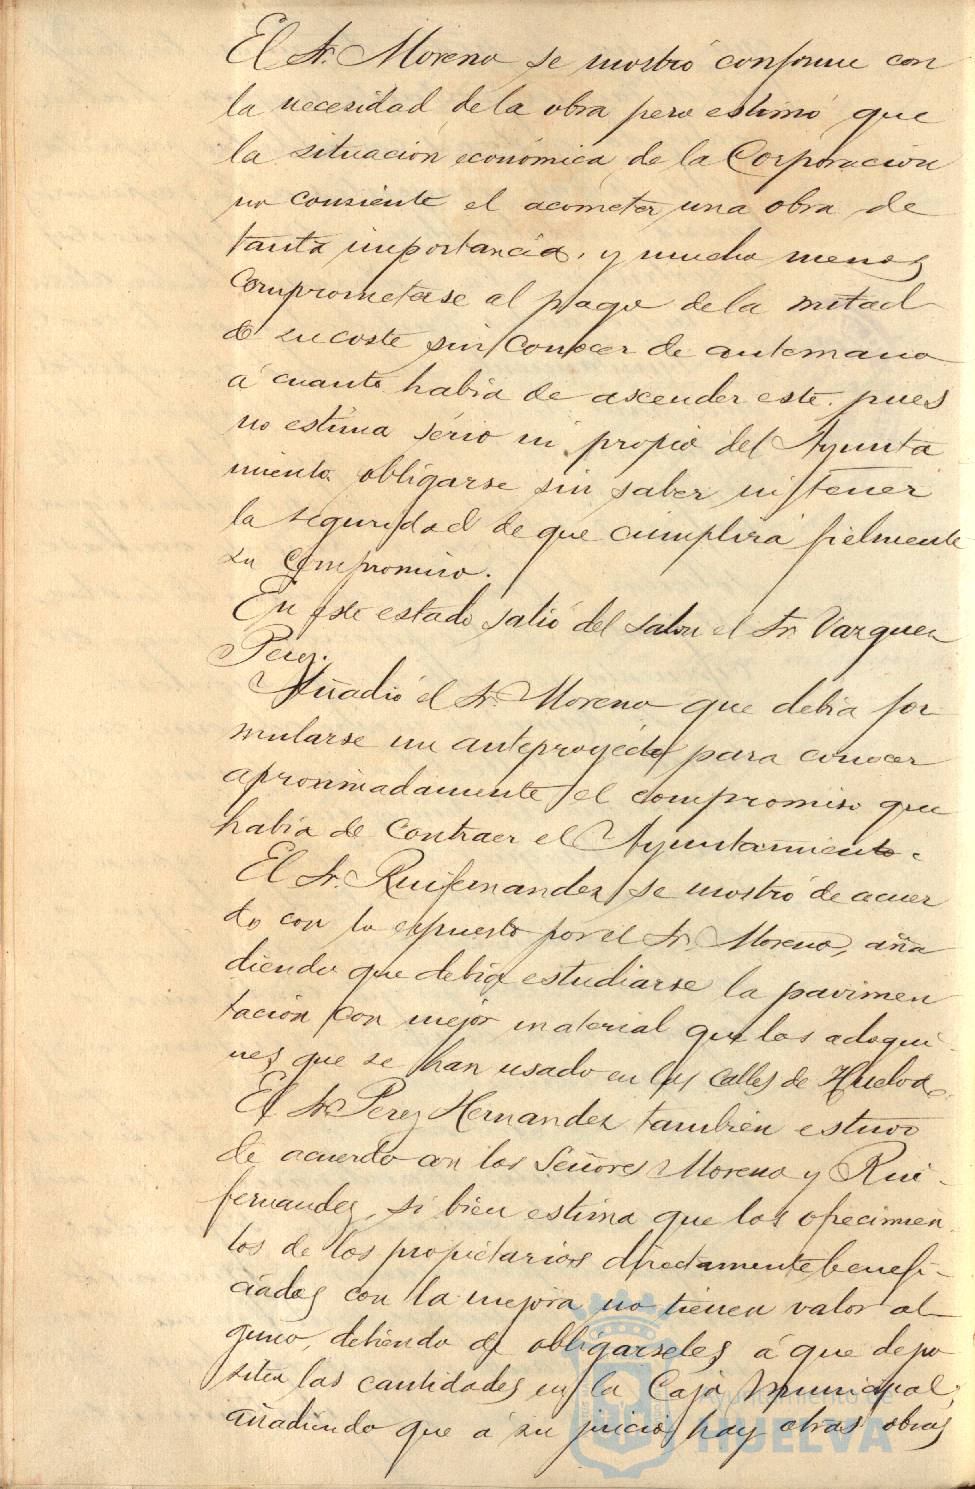 El Sr. Moreno se mostró conforme con
la necesidad de la obra pero estimó que
la situación económica de la Corporación
no consiente el acometer una obra de
tanta importancia, y mucho menos
comprometerse al pago de la mitad
de su coste sin conocer de antemano
á cuanto habia de ascender este. pues
no estima sério ni propio del Ayunta
miento obligarse sin saber ni tener
la seguridad de que cumplirá fielmente
su compromiso.
En este estado salió del salon el Sr. Vazquez
Perez.
Añadió el Sr. Moreno que debia for
mularse un anteproyecto para conocer
aproximadamente el compromiso que
habia de contraer el Ayuntamiento.
El Sr. Ruifernandez se mostró de acuer
do con lo expuesto por el Sr. Moreno, aña
diendo que debia estudiarse la pavimen
tación con mejor material que los adoqui
nes que se han usado en las calles de Huelva.
El Sr. Perez Hernandez tambien estuvo
de acuerdo con los Señores Moreno y Rui-
fernandez, si bien estima que los ofrecimien
tos de los propietarios directamente benefi-
ciados con la mejora no tienen valor al
guno, debiendo de obligarseles á que depo
siten las cantidades en la Caja Municipal,
añadiendo que á su juicio hay otras obras
Ayuntamiento de
HUELVA